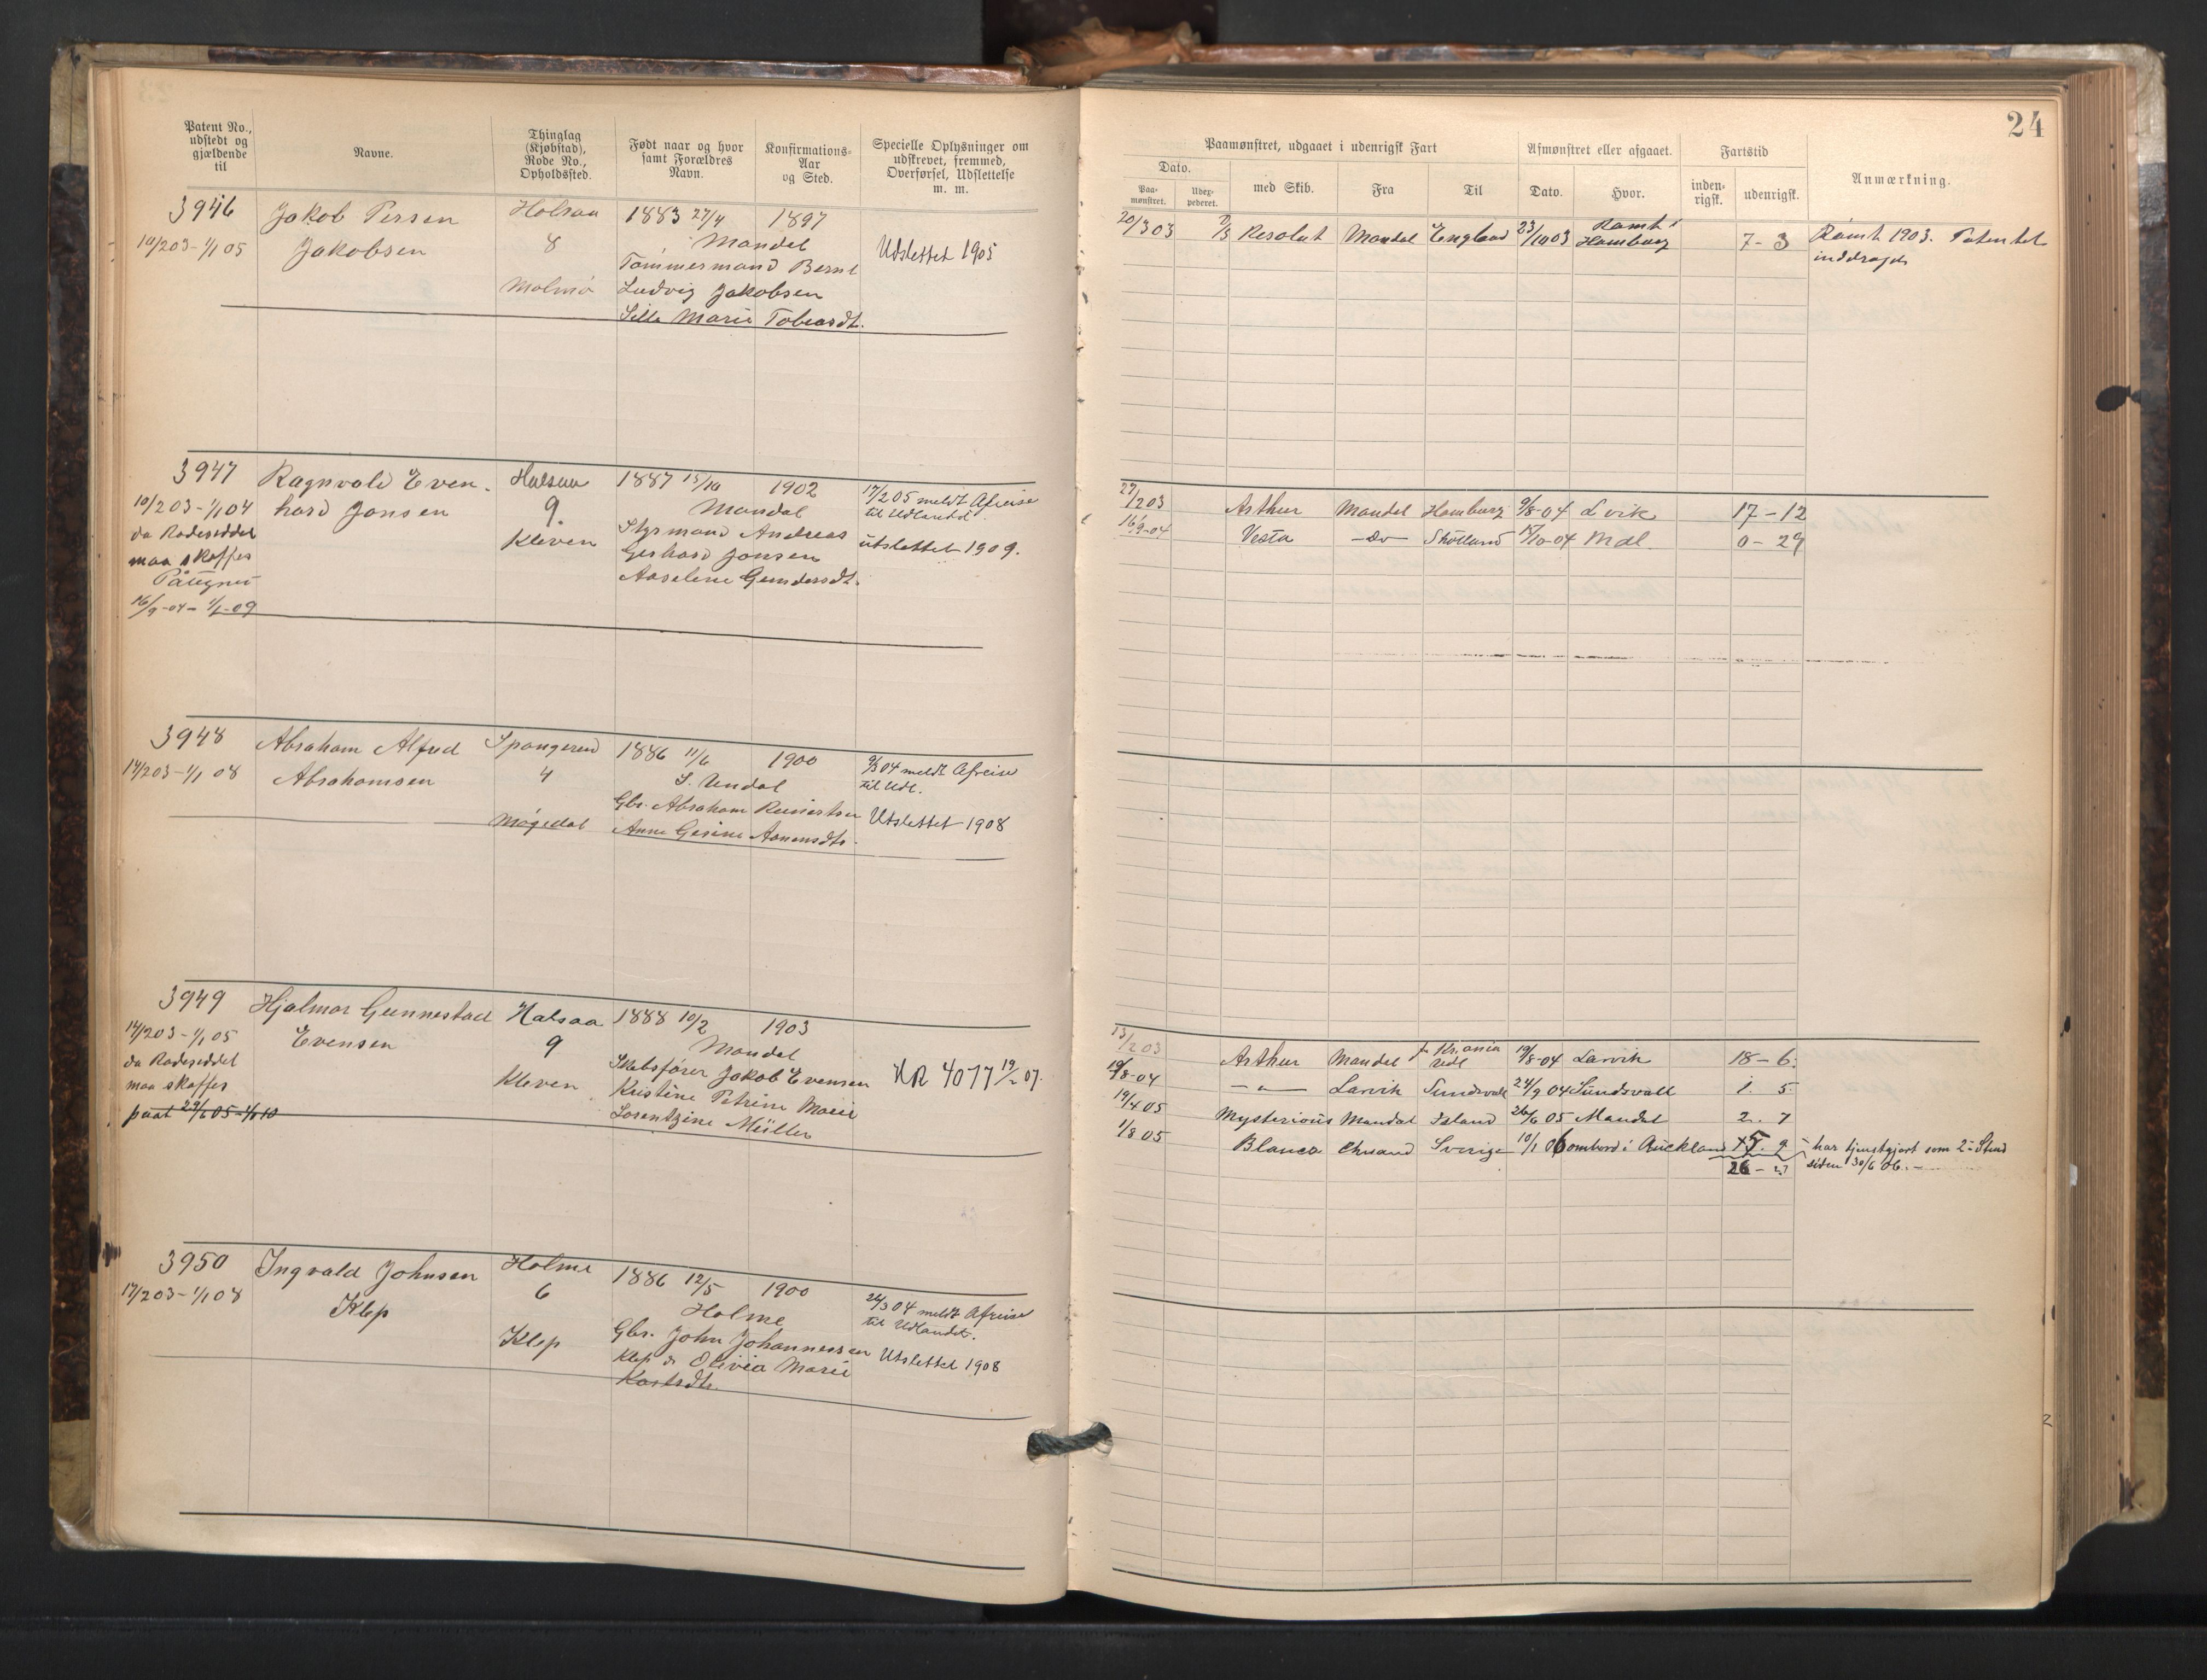 24
Patent No., udstedt og gjældende til
Navne.
Thinglag (Kjøbstad), Rode No., Opholdssted.
Født naar og hvor samt Forældres Navn.
Konfirmations-Aar og Sted.
Specielle Oplysninger om udskrevet, fremmed, Overførsel, Udslettelse m. m.
Paamønstret, udgaaet i udenrigsk Fart
Afmønstret eller afgaaet.
Fartstid
Anmærkning.
Dato.
Paa-mønstret.
med Skib.
Fra
Til
Dato.
Hvor.
inden-rigsk.
udenrigsk.
3946 Jakob Persen Halsaa 1883 27/4 1897
10/2 03 - 1/1 05 Jakobsen 8 Mandal Udslettet 1905
Tømmermand Bernt
Malmø Ludvig Jakobsen
Sille Marie Tobiasdt.
20/3 03 Resolut Mandal England 23/10 03 Rømt i Hamburg 7 - 3 Rømt 1903. Patentet
inddrages
3947 Ragnvald Even- Halsaa 1887 15/10 1902 17/2 05 meldt Afreise
10/2 03 - 1/1 04 hard Jonsen 9. Mandal til Udlandet.
da Rodeseddel Kleven Styrmand Andreas utslettet 1909.
maa skaffes Gerhard Jonsen
Påtegnet Aaselene Gundersdt.
16/9 - 04 - 1/1 - 09
27/2 03 Arthur Mandal Hamburg 9/8 - 04 Lvik 17 - 12
16/9 - 04 Vesta - Do - Skotland 15/10 - 04 Mdl. 0 - 29
3948 Abraham Alfred Spangereid 1886 11/6 1900 9/3 04 meldt Afreise
14/2 03 - 1/1 08 Abrahamsen 4 S. Undal til Udl.
Gbr. Abraham Reinertsen Utslettet 1908
Anne Gesine Aanensdtr.
3949 Hjalmar Gunnestad Halsaa 1888 10/2 1903
14/2 03 - 1/1 05 Evensen 9 Mandal
da Rodeseddel Skibsfører Jakob Evensen HR 4077 19/2 07.
maa skaffes Kleven Kristine Petrine Marie
paat 29/6 05 - 1/1 10 Lorentzine Müller
13/2 03 Arthur Mandal Kr.ania 19/8 - 04 Larvik 18 - 6.
19/8 - 04 - " - Larvik Sundsvall 24/9 04 Sundsvall 1. 5
19/4 05 Mysteriøus Mandal Island 26/6 05 Mandal 2. 7
1/8 05 Blanca Chrsand Sverige 10/1 06 ombord i Auckland 5. 9 har tjenstgjort som 2- Stmd
26 - 27 siden 30/6 06. -
3950 Ingvald Johnsen Holme 1886 12/5 1900
17/2 03 - 1/1 08 Klep 6 Holme 26/3 04 meldt Afreise
Klep Gbr. John Johannessen til Udlandet.
Klep & Olivia Marie Utslettet 1908